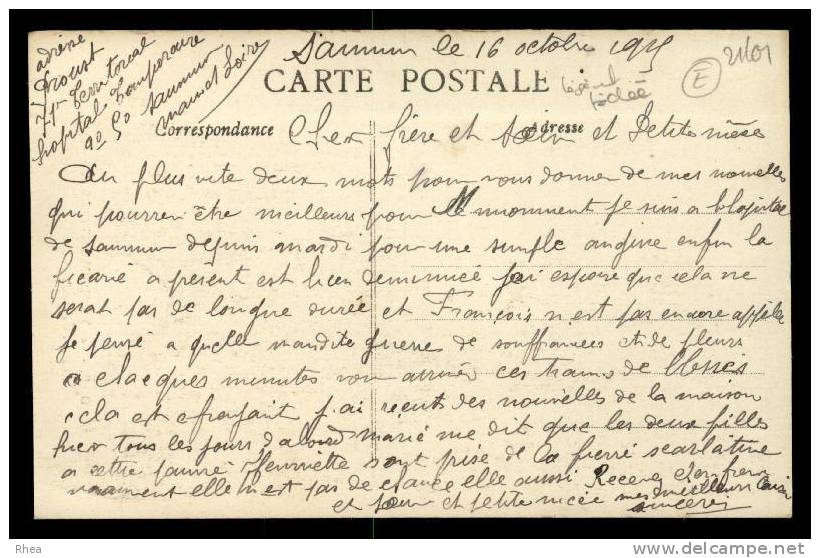 Saumur le 16 octobre 1915
adresse
Proust
71e territorial
hopital temporaire
no 50 Saumur
maine et Loire
21401
E
CARTE POSTALE
Correspondance
Adresse
Cher frère et sœur et Petite nièce
Au plus vite deux mots pour vous donner de mes nouvelles
qui pourren être meilleurs pour le momment je suis a lhopital
de saumur depuis mardi pour une simple angine enfin la
a présent est bien deminué jai espoire que cela ne
serat pas de longue durée et François n'est pas encore appelé
je pense a quelle maudite guerre de souffrances et de pleurs
a chacques minutes vou arrivée ces trains de blessés
cela est efreyant j'ai reçut des nouvelles de la maison
hier tous les jours d'abord marie me dit que les deux filles
a cette pauvre Henriette sont prise de la fierre scarlatine
vraiment elle n'est pas de chance elle aussi Recevez cher frere
et sœur et petite niece mes meilleurs
sinceres
Rhea
www.delcampe.net